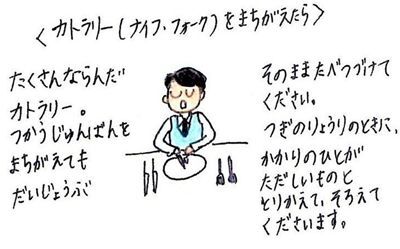 ＜カトラリー(ナイフ、フォーク)をまちがえたら＞
たくさんならんだ
カトラリー。
つかうじゅんばんを
まちがえても
だいじょうぶ
そのままたべつづけて
ください。
つぎのりょうりのときに、
かかりのひとが
ただしいものと
とりかえて、そろえて
くださいます。